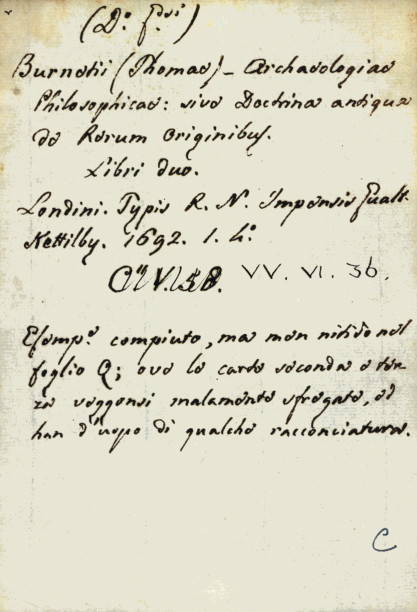 (D.º f.dei)
Burnetii (Thomae) _ Archaeologiae
Philosophicae: sive Doctrina antiqua
de Rerum Originibus.
Libri duo.
Londini. Typis R. N. Impensis Gualt.
Kettilby. 1692. 1. 4.º
VV. VI. 36.
Esemp.º compiuto, ma men nitido nel
foglio Q; ove le carte seconda e ter-
za veggonsi malamente sfregate, ed
han d'uopo di qualche racconciatura.
C